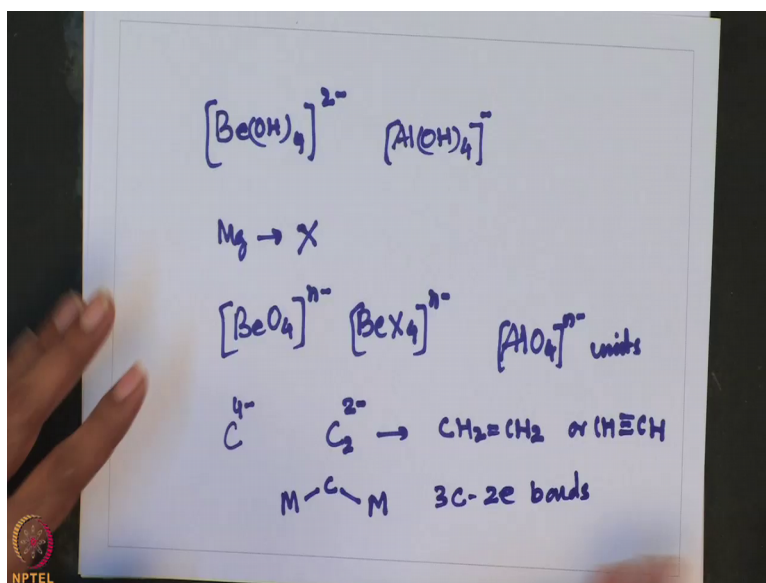 [Be(OH)₄]²⁻ [Al(OH)₄]⁻
Mg → X
[BeO₄]ⁿ⁻ [BeX₄]ⁿ⁻ [AlO₄]ⁿ⁻ units
C⁴⁻ C₂²⁻ → CH₂=CH₂ or CH≡CH
M-C-M 3C-2e bonds
NPTEL